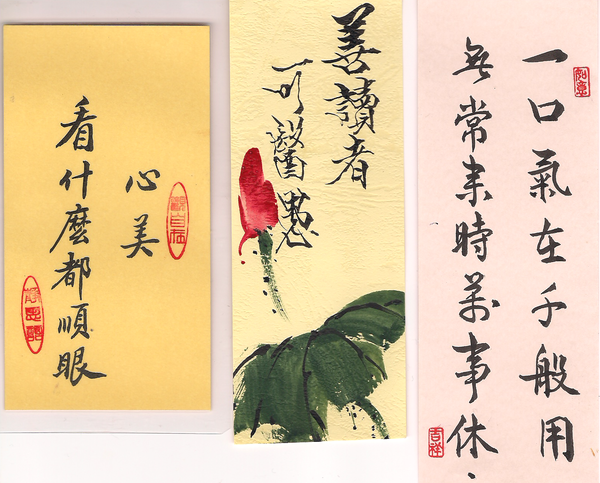 心美
看什麼都順眼
觀自在
善讀者
可醫愚
一口氣在千般用
無常來時萬事休
吉祥